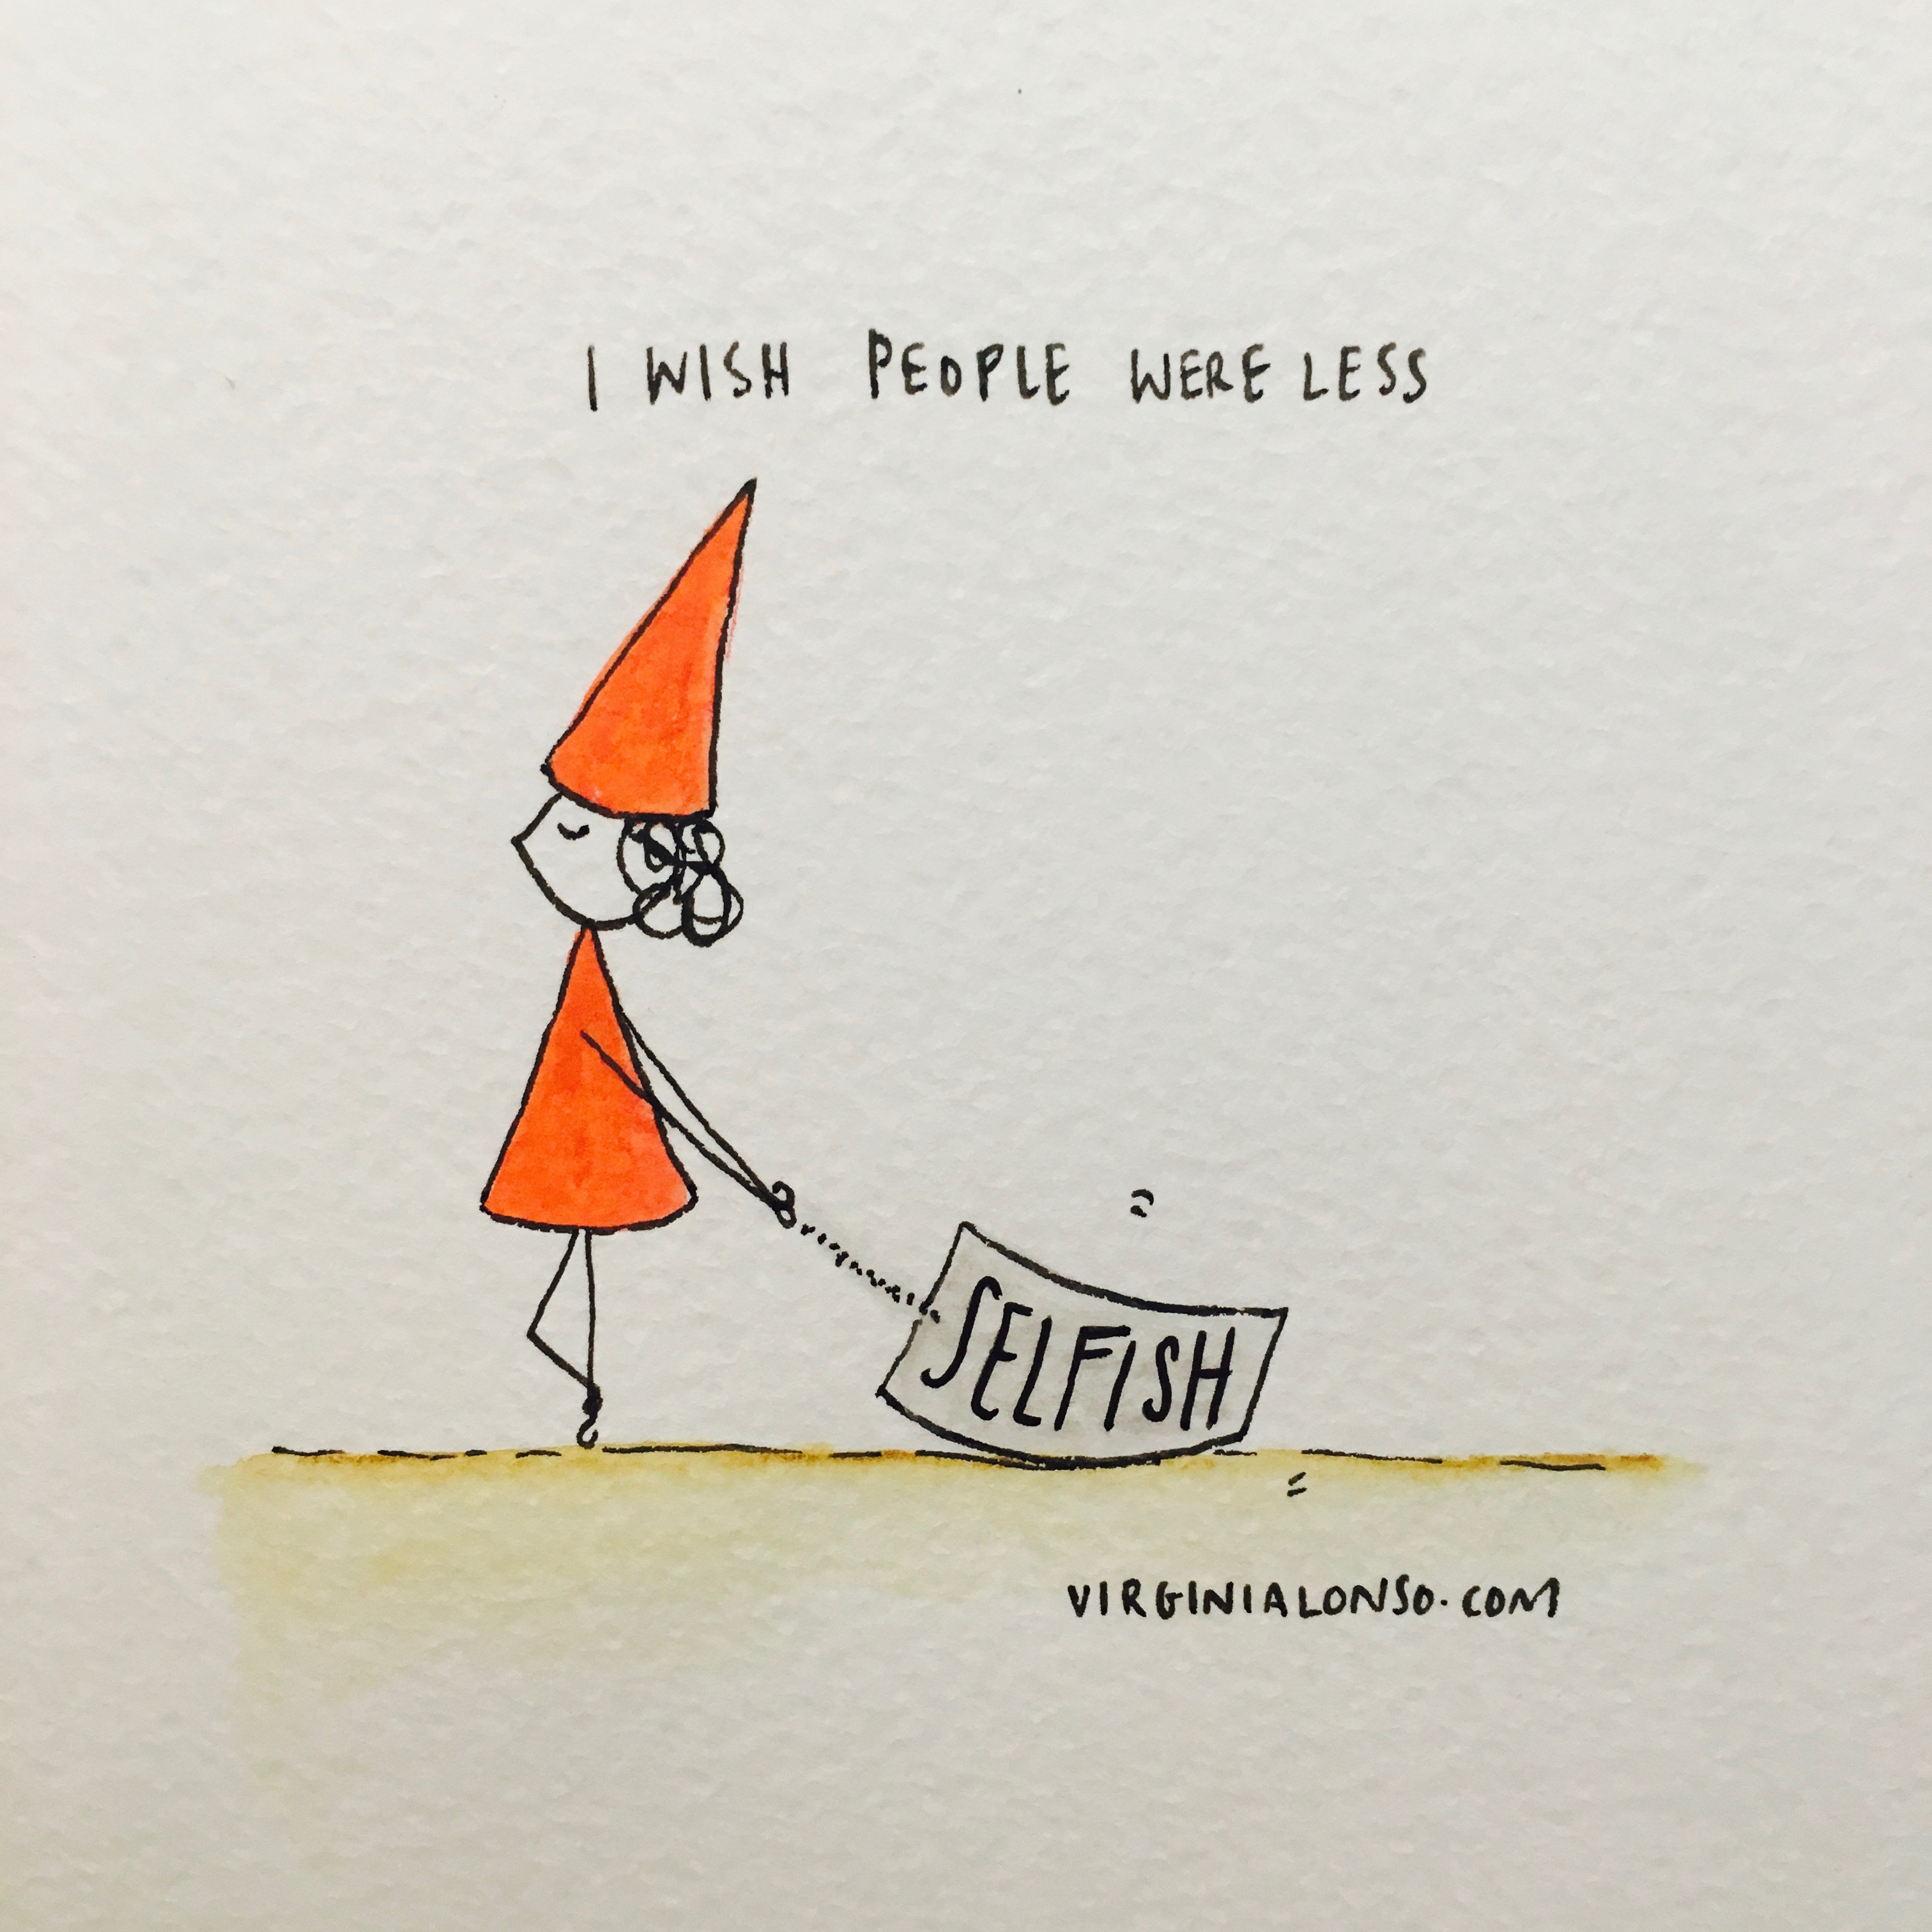 I WISH PEOPLE WERE LESS
SELFISH
VIRGINIALONSO.COM